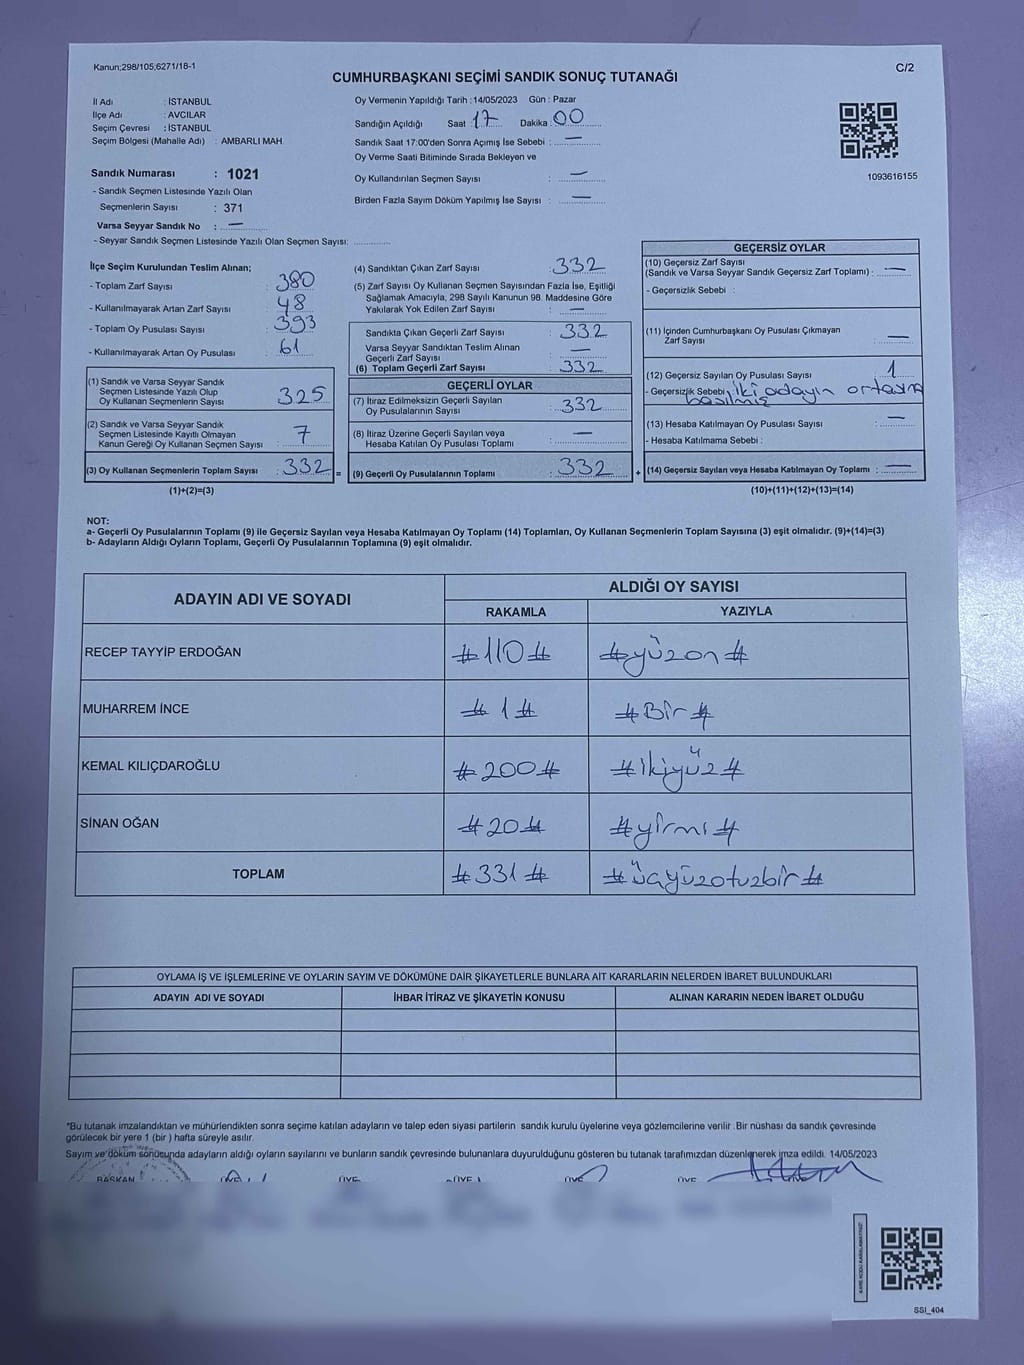 Kanun;298/105;6271/18-1
C/2
CUMHURBAŞKANI SEÇİMİ SANDIK SONUÇ TUTANAĞI
İl Adı : İSTANBUL
İlçe Adı : AVCILAR
Seçim Çevresi : İSTANBUL
Seçim Bölgesi (Mahalle Adı) : AMBARLI MAH.
Oy Vermenin Yapıldığı Tarih : 14/05/2023 Gün : Pazar
Sandığın Açıldığı Saat : 17 Dakika : 00
Sandık Saat 17:00'den Sonra Açımış İse Sebebi : —
Oy Verme Saati Bitiminde Sırada Bekleyen ve
Oy Kullandırılan Seçmen Sayısı : —
Birden Fazla Sayım Döküm Yapılmış İse Sayısı : —
1093616155
Sandık Numarası : 1021
- Sandık Seçmen Listesinde Yazılı Olan
Seçmenlerin Sayısı : 371
Varsa Seyyar Sandık No : —
- Seyyar Sandık Seçmen Listesinde Yazılı Olan Seçmen Sayısı:
İlçe Seçim Kurulundan Teslim Alınan;
- Toplam Zarf Sayısı : 380
- Kullanılmayarak Artan Zarf Sayısı : 48
- Toplam Oy Pusulası Sayısı : 393
- Kullanılmayarak Artan Oy Pusulası : 61
(1) Sandık ve Varsa Seyyar Sandık
Seçmen Listesinde Yazılı Olup
Oy Kullanan Seçmenlerin Sayısı : 325
(2) Sandık ve Varsa Seyyar Sandık
Seçmen Listesinde Kayıtlı Olmayan
Kanun Gereği Oy Kullanan Seçmen Sayısı : 7
(3) Oy Kullanan Seçmenlerin Toplam Sayısı : 332 =
(1)+(2)=(3)
(4) Sandıktan Çıkan Zarf Sayısı : 332
(5) Zarf Sayısı Oy Kullanan Seçmen Sayısından Fazla İse, Eşitliği
Sağlamak Amacıyla, 298 Sayılı Kanunun 98. Maddesine Göre
Yakılarak Yok Edilen Zarf Sayısı : —
Sandıkta Çıkan Geçerli Zarf Sayısı : 332
Varsa Seyyar Sandıktan Teslim Alınan
Geçerli Zarf Sayısı : —
(6) Toplam Geçerli Zarf Sayısı : 332
GEÇERLİ OYLAR
(7) İtiraz Edilmeksizin Geçerli Sayılan
Oy Pusulalarının Sayısı : 332
(8) İtiraz Üzerine Geçerli Sayılan veya
Hesaba Katılan Oy Pusulaları Toplamı : —
(9) Geçerli Oy Pusulalarının Toplamı : 332 +
GEÇERSİZ OYLAR
(10) Geçersiz Zarf Sayısı
(Sandık ve Varsa Seyyar Sandık Geçersiz Zarf Toplamı) : —
- Geçersizlik Sebebi :
(11) İçinden Cumhurbaşkanı Oy Pusulası Çıkmayan
Zarf Sayısı : —
(12) Geçersiz Sayılan Oy Pusulası Sayısı : 1
- Geçersizlik Sebebi : İki adayın ortasına
basılmış
(13) Hesaba Katılmayan Oy Pusulası Sayısı : —
- Hesaba Katılmama Sebebi :
(14) Geçersiz Sayılan veya Hesaba Katılmayan Oy Toplamı : —
(10)+(11)+(12)+(13)=(14)
NOT:
a- Geçerli Oy Pusulalarının Toplamı (9) ile Geçersiz Sayılan veya Hesaba Katılmayan Oy Toplamı (14) Toplamları, Oy Kullanan Seçmenlerin Toplam Sayısına (3) eşit olmalıdır. (9)+(14)=(3)
b- Adayların Aldığı Oyların Toplamı, Geçerli Oy Pusulalarının Toplamına (9) eşit olmalıdır.
ADAYIN ADI VE SOYADI
ALDIĞI OY SAYISI
RAKAMLA YAZIYLA
RECEP TAYYİP ERDOĞAN #110# #yüzon#
MUHARREM İNCE #1# #Bir#
KEMAL KILIÇDAROĞLU #200# #ikiyüz#
SİNAN OĞAN #20# #yirmi#
TOPLAM #331# #üçyüzotuzbir#
OYLAMA İŞ VE İŞLEMLERİNE VE OYLARIN SAYIM VE DÖKÜMÜNE DAİR ŞİKAYETLERLE BUNLARA AİT KARARLARIN NELERDEN İBARET BULUNDUKLARI
ADAYIN ADI VE SOYADI İHBAR İTİRAZ VE ŞİKAYETİN KONUSU ALINAN KARARIN NEDEN İBARET OLDUĞU
*Bu tutanak imzalandıktan ve mühürlendikten sonra seçime katılan adayların ve talep eden siyasi partilerin sandık kurulu üyelerine veya gözlemcilerine verilir .Bir nüshası da sandık çevresinde
görülecek bir yere 1 (bir ) hafta süreyle asılır.
Sayım ve döküm sonucunda adayların aldığı oyların sayılarını ve bunların sandık çevresinde bulunanlara duyurulduğunu gösteren bu tutanak tarafımızdan düzenlenerek imza edildi. 14/05/2023
BAŞKAN ÜYE ÜYE ÜYE ÜYE ÜYE
SSI_404